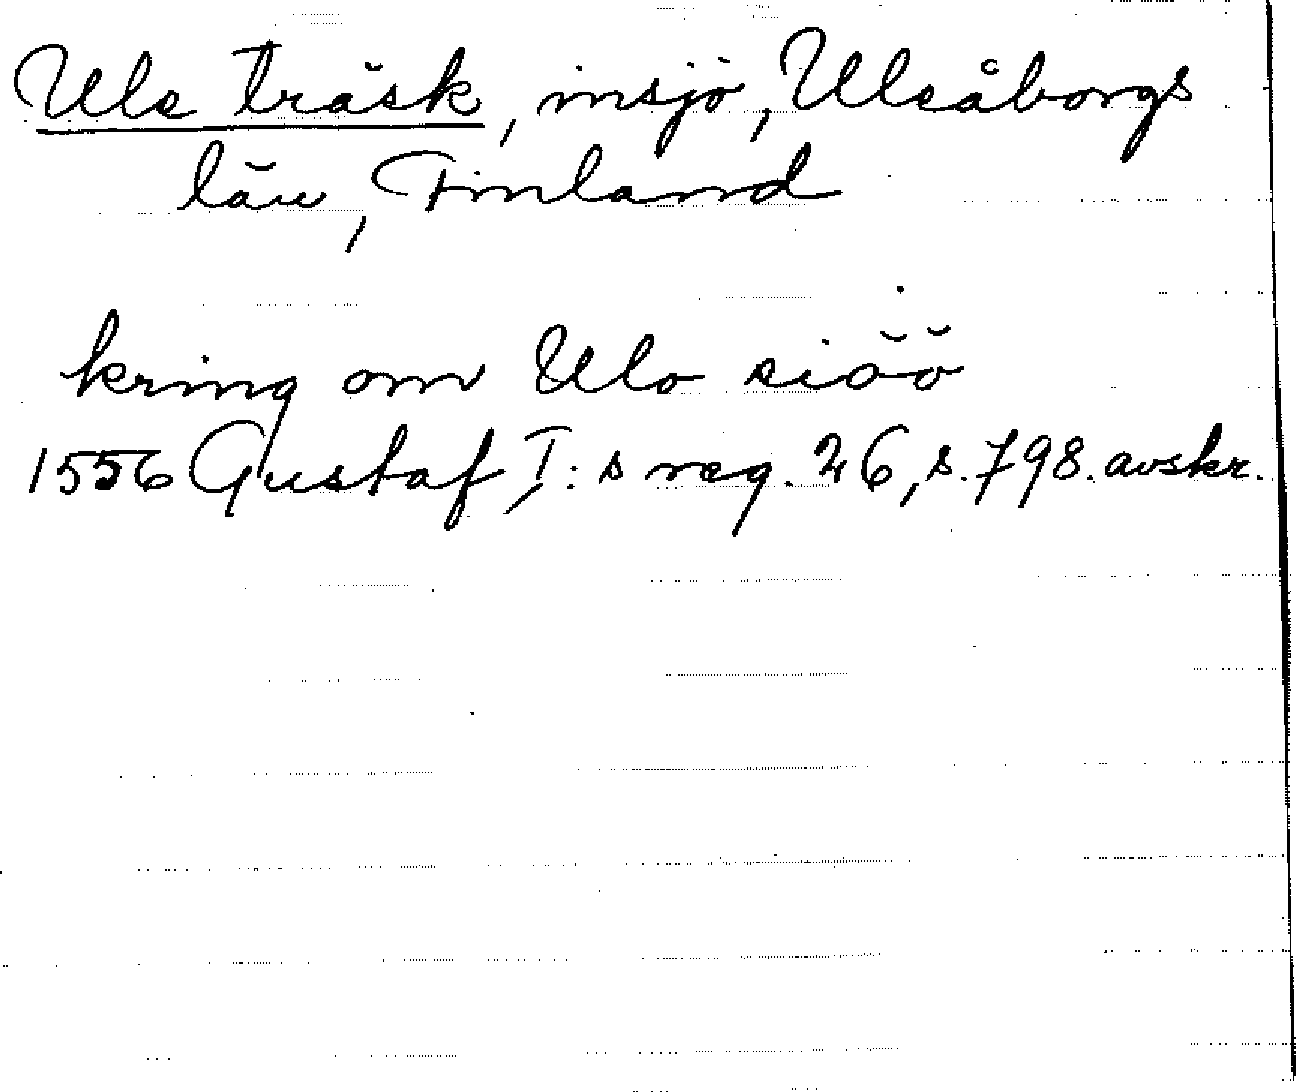 Ule träsk, insjö, Uleåborgs
län, Finland
kring om Ulo siöö
1556 Gustaf I:s reg. 26, s. 798. avskr.